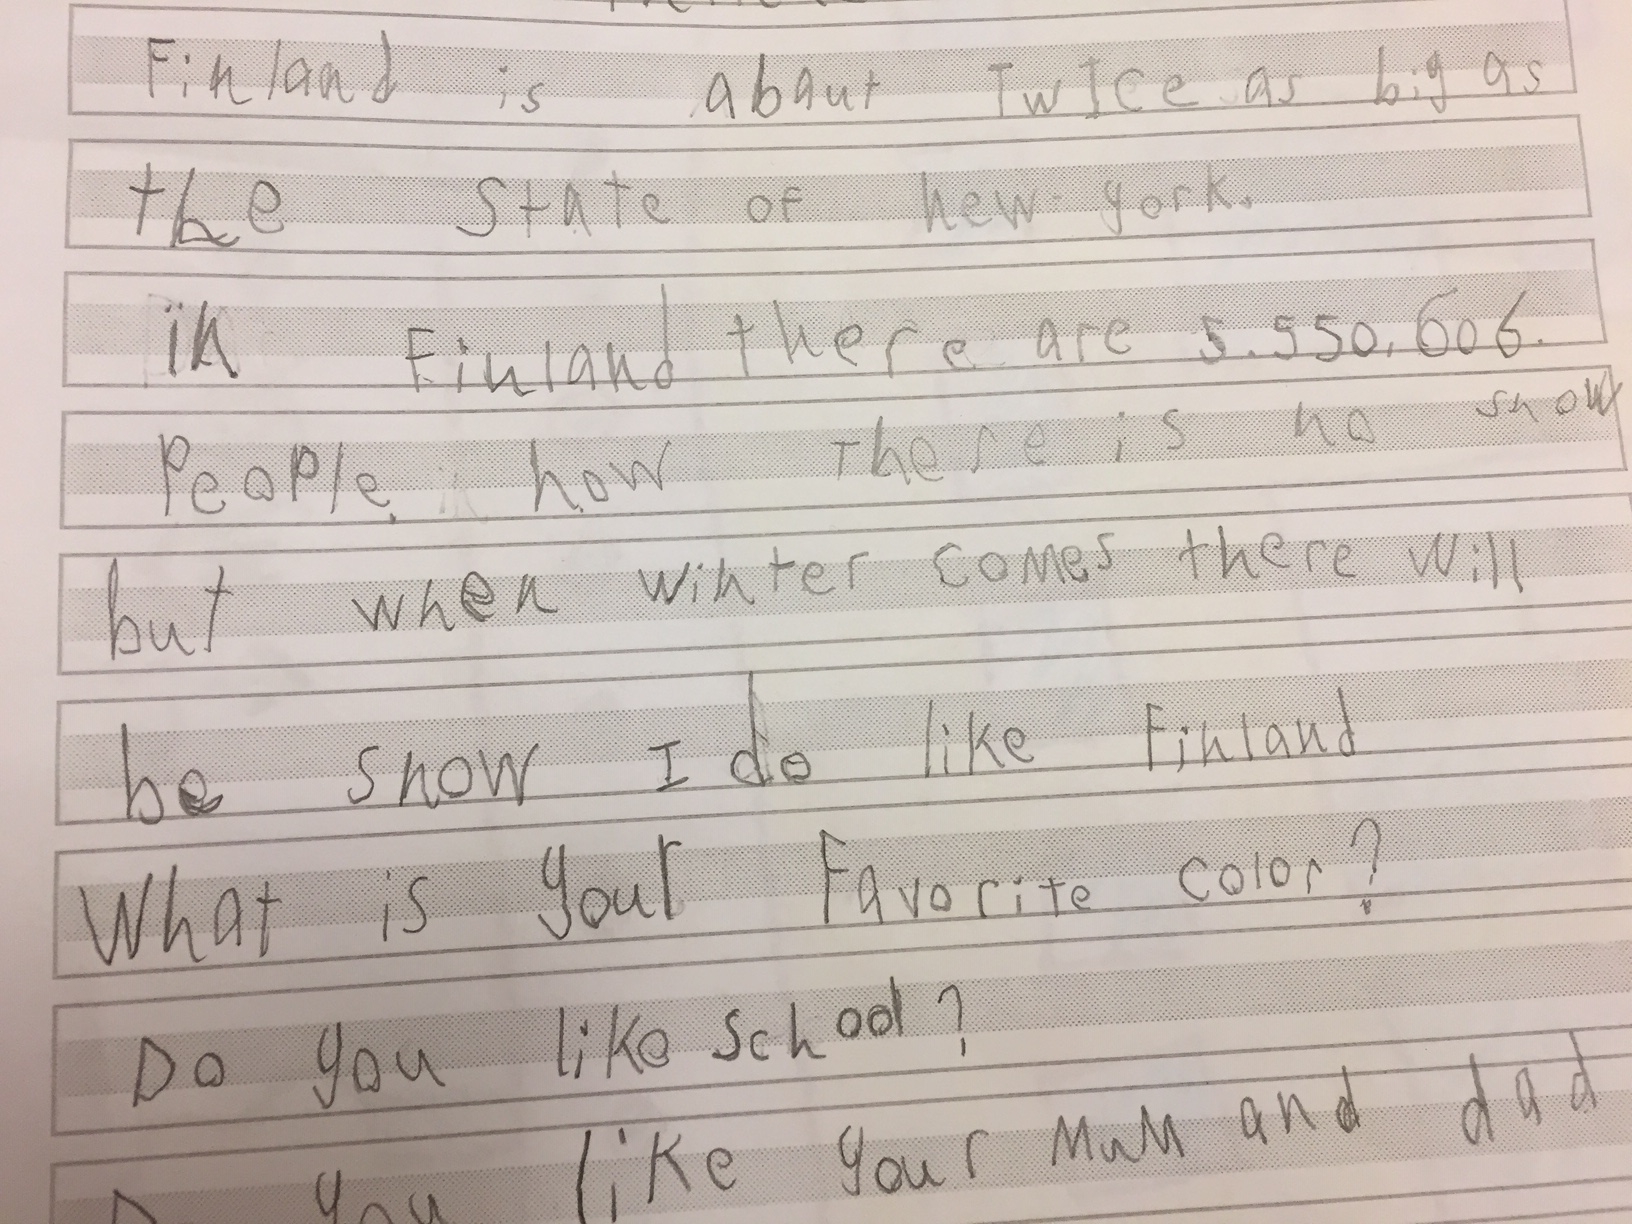 Finland is abaut twice as big as
the state of new york.
in Finland there are 5.550.606.
People. now there is no snow
but when winter comes there will
be snow I do like Finland
What is your Favorite color?
Do you like school?
Do you like your Mum and dad